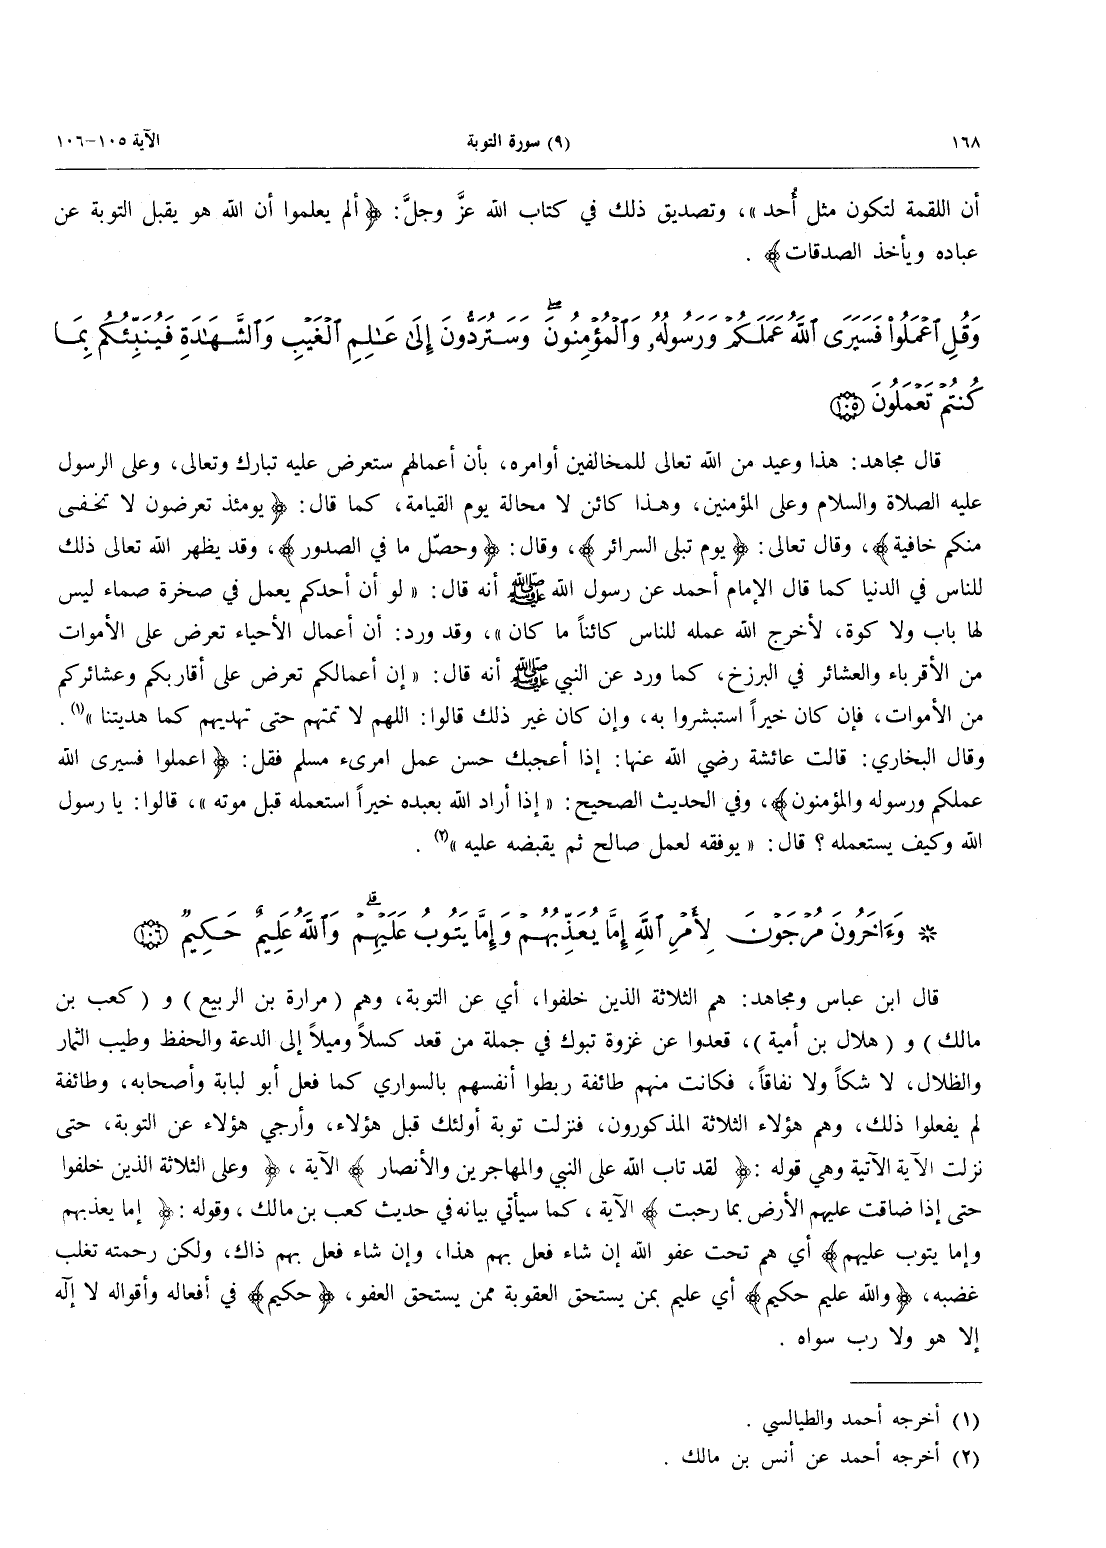 ١٦٨ (٩) سورة التوبة الآية ١٠٥–١٠٦
أن اللقمة لتكون مثل أُحد »، وتصديق ذلك في كتاب الله عزَّ وجلَّ: ﴿ألم يعلموا أن الله هو يقبل التوبة عن
عباده ويأخذ الصدقات﴾ .
وَقُلِ ٱعْمَلُوا۟ فَسَيَرَى ٱللَّهُ عَمَلَكُمْ وَرَسُولُهُۥ وَٱلْمُؤْمِنُونَ ۖ وَسَتُرَدُّونَ إِلَىٰ عَـٰلِمِ ٱلْغَيْبِ وَٱلشَّهَـٰدَةِ فَيُنَبِّئُكُم بِمَا
كُنتُمْ تَعْمَلُونَ ١٠٥
قال مجاهد: هذا وعيد من الله تعالى للمخالفين أوامره، بأن أعمالهم ستعرض عليه تبارك وتعالى، وعلى الرسول
عليه الصلاة والسلام وعلى المؤمنين، وهـذا كائن لا محالة يوم القيامة، كما قال: ﴿يومئذ تعرضون لا تخفـى
منكم خافية﴾، وقال تعالى: ﴿يوم تبلى السرائر﴾، وقال: ﴿وحصّل ما في الصدور﴾، وقد يظهر الله تعالى ذلك
للناس في الدنيا كما قال الإمام أحمد عن رسول الله ﷺ أنه قال: « لو أن أحدكم يعمل في صخرة صماء ليس
لها باب ولا كوة، لأخرج الله عمله للناس كائناً ما كان »، وقد ورد: أن أعمال الأحياء تعرض على الأموات
من الأقرباء والعشائر في البرزخ، كما ورد عن النبي ﷺ أنه قال: « إن أعمالكم تعرض على أقاربكم وعشائركم
من الأموات، فإن كان خيراً استبشروا به، وإن كان غير ذلك قالوا: اللهم لا تمتهم حتى تهديهم كما هديتنا »(١) .
وقال البخاري: قالت عائشة رضي الله عنها: إذا أعجبك حسن عمل امرىء مسلم فقل: ﴿اعملوا فسيرى الله
عملكم ورسوله والمؤمنون﴾، وفي الحديث الصحيح: « إذا أراد الله بعبده خيراً استعمله قبل موته »، قالوا: يا رسول
الله وكيف يستعمله ؟ قال: « يوفقه لعمل صالح ثم يقبضه عليه »(٢) .
* وَءَاخَرُونَ مُرْجَوْنَ لِأَمْرِ ٱللَّهِ إِمَّا يُعَذِّبُهُمْ وَإِمَّا يَتُوبُ عَلَيْهِمْ ۗ وَٱللَّهُ عَلِيمٌ حَكِيمٌ ١٠٦
قال ابن عباس ومجاهد: هم الثلاثة الذين خلفوا، أي عن التوبة، وهم ( مرارة بن الربيع ) و ( كعب بن
مالك ) و ( هلال بن أمية )، قعدوا عن غزوة تبوك في جملة من قعد كسلاً وميلاً إلى الدعة والحفظ وطيب الثمار
والظلال، لا شكاً ولا نفاقاً، فكانت منهم طائفة ربطوا أنفسهم بالسواري كما فعل أبو لبابة وأصحابه، وطائفة
لم يفعلوا ذلك، وهم هؤلاء الثلاثة المذكورون، فنزلت توبة أولئك قبل هؤلاء، وأرجي هؤلاء عن التوبة، حتى
نزلت الآية الآتية وهي قوله :﴿ لقد تاب الله على النبي والمهاجرين والأنصار ﴾ الآية ، ﴿ وعلى الثلاثة الذين خلفوا
حتى إذا ضاقت عليهم الأرض بما رحبت ﴾ الآية ، كما سيأتي بيانه في حديث كعب بن مالك ، وقوله :﴿ إما يعذبهم
وإما يتوب عليهم﴾ أي هم تحت عفو الله إن شاء فعل بهم هذا، وإن شاء فعل بهم ذاك، ولكن رحمته تغلب
غضبه، ﴿والله عليم حكيم﴾ أي عليم بمن يستحق العقوبة ممن يستحق العفو، ﴿حكيم﴾ في أفعاله وأقواله لا إلٓه
إلا هو ولا رب سواه .
(١) أخرجه أحمد والطيالسي .
(٢) أخرجه أحمد عن أنس بن مالك .